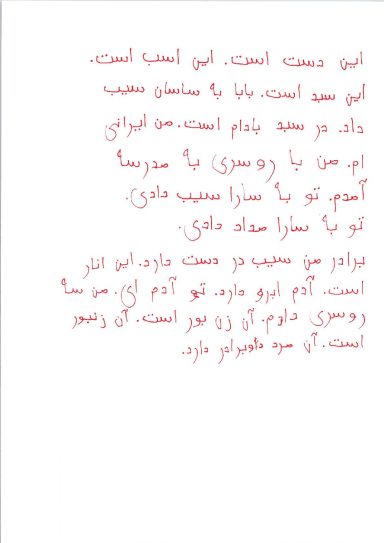 این دست است. این اسب است.
این سبد است. بابا به ساسان سیب
داد. در سبد بادام است. من ایرانی
ام. من با روسری به مدرسه
آمدم. تو به سارا سیب دادی.
تو به سارا مداد دادی.
برادر من سیب در دست دارد. این انار
است. آدم ابرو دارد. تو آدم ای. من سه
روسری دارم. آن زن بور است. آن زنبور
است. آن مرد دو برادر دارد.